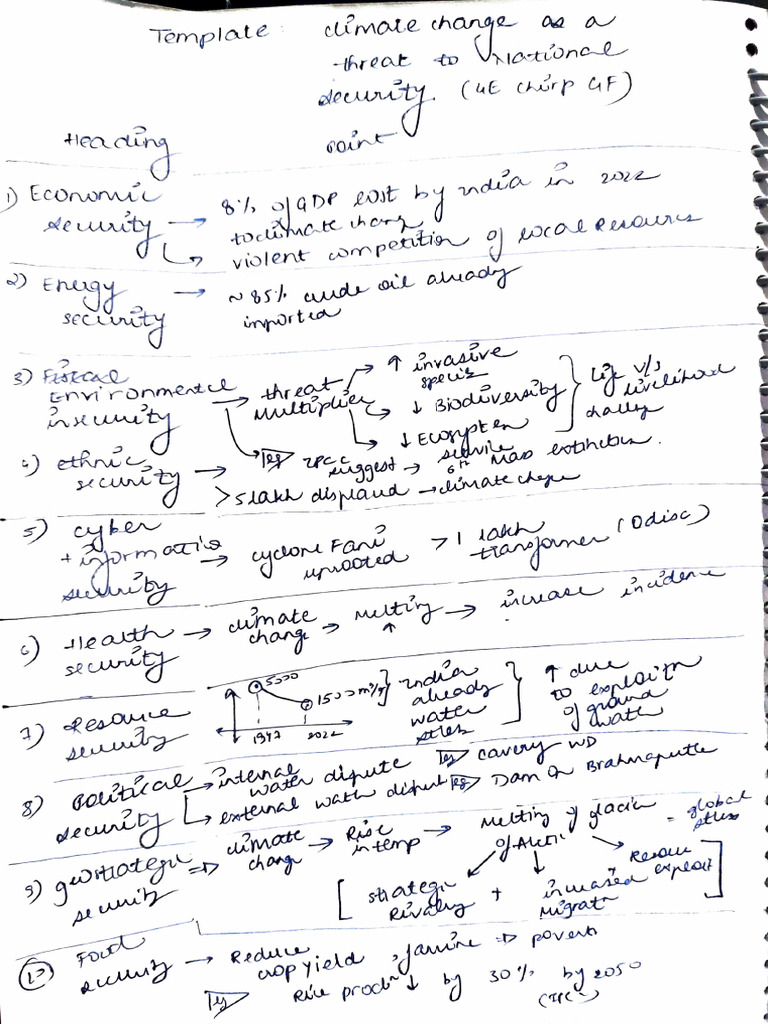 Template: climate change as a
threat to National
security. (4E CHIRP GF)
Heading point
1) Economic → 8% of GDP lost by India in 2022
security to climate change
↳ violent competition of local Resources
2) Energy → ~85% crude oil already
security imported
3) Environmental → threat → ↑ invasive species
insecurity multiplier → ↓ Biodiversity } Life v/s livelihood
→ ↓ Ecosystem service
Eg IPCC suggest → 6th Mass extinction.
4) ethnic →
security >5 lakh displaced → climate change
5) cyber
+ informatio → cyclone Fani uprooted >1 lakh transformer (Odisc)
security
6) Health → climate → Melting → increase incidence
security change ↑
7) Resource 5000 1500 m³/y } India already water stress ] ↑ due to exploitn of ground water
security 1947 2022
8) Political → internal water dispute Eg Cavery WD
security → external water disput Eg Dam on Brahmaputra
9) geostrategic ⇒ climate → Rise → Melting of glacier = global stress
security change in temp of Arctic
[ strategic Rivalry + increased Migratn Resource exploit ]
10) Food → Reduce crop yield, famine ⇒ poverty
security
Eg Rice prodn ↓ by 30% by 2050
(IPCC)